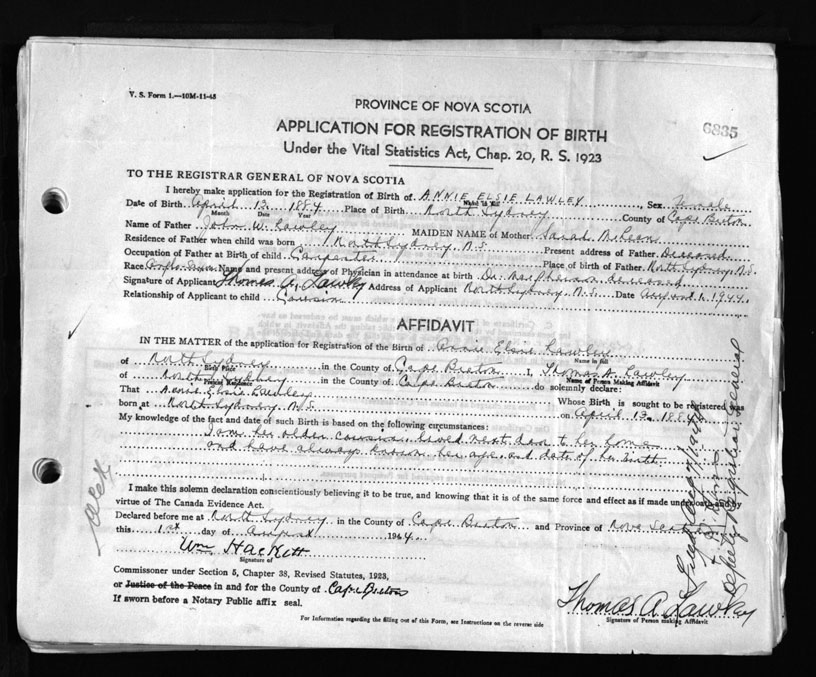 V. S. Form 1.—10M-11-45
PROVINCE OF NOVA SCOTIA
6835
APPLICATION FOR REGISTRATION OF BIRTH
Under the Vital Statistics Act, Chap. 20, R. S. 1923
TO THE REGISTRAR GENERAL OF NOVA SCOTIA
I hereby make application for the Registration of Birth of ANNIE ELSIE LAWLEY, Sex female
Name in full
Date of Birth April 13 1884 Place of Birth North Sydney County of Cape Breton
Month Date Year
Name of Father John W. Lawley MAIDEN NAME of Mother Sarah McLean
Residence of Father when child was born North Sydney N.S. Present address of Father Deceased
Occupation of Father at Birth of child Carpenter Place of birth of Father North Sydney N.S.
Race Name and present address of Physician in attendance at birth Dr. MacPherson deceased
Signature of Applicant Thomas A. Lawley Address of Applicant North Sydney N.S. Date August 1. 1944.
Relationship of Applicant to child Cousin
AFFIDAVIT
IN THE MATTER of the application for Registration of the Birth of Annie Elsie Lawley
Name in full
of North Sydney in the County of Cape Breton I, Thomas A. Lawley
Birth Place Name of Person Making Affidavit
of North Sydney in the County of Cape Breton do solemnly declare:
Present Residence
That Annie Elsie Lawley Whose Birth is sought to be registered was
born at North Sydney N.S. on April 13 1884
My knowledge of the fact and date of such Birth is based on the following circumstances:
I am her older cousin, lived next door to her home
and have always known her age and date of her birth.
I make this solemn declaration conscientiously believing it to be true, and knowing that it is of the same force and effect as if made under oath and by
virtue of The Canada Evidence Act.
Declared before me at North Sydney in the County of Cape Breton and Province of Nova Scotia
this 1st day of August 1944.
Wm Hackett
Signature of
Commissoner under Section 5, Chapter 38, Revised Statutes, 1923,
or Justice of the Peace in and for the County of Cape Breton
If sworn before a Notary Public affix seal.
Thomas A. Lawley
Signature of Person making Affidavit
For Information regarding the filling out of this Form, see Instructions on the reverse side
Deputy Registrar General